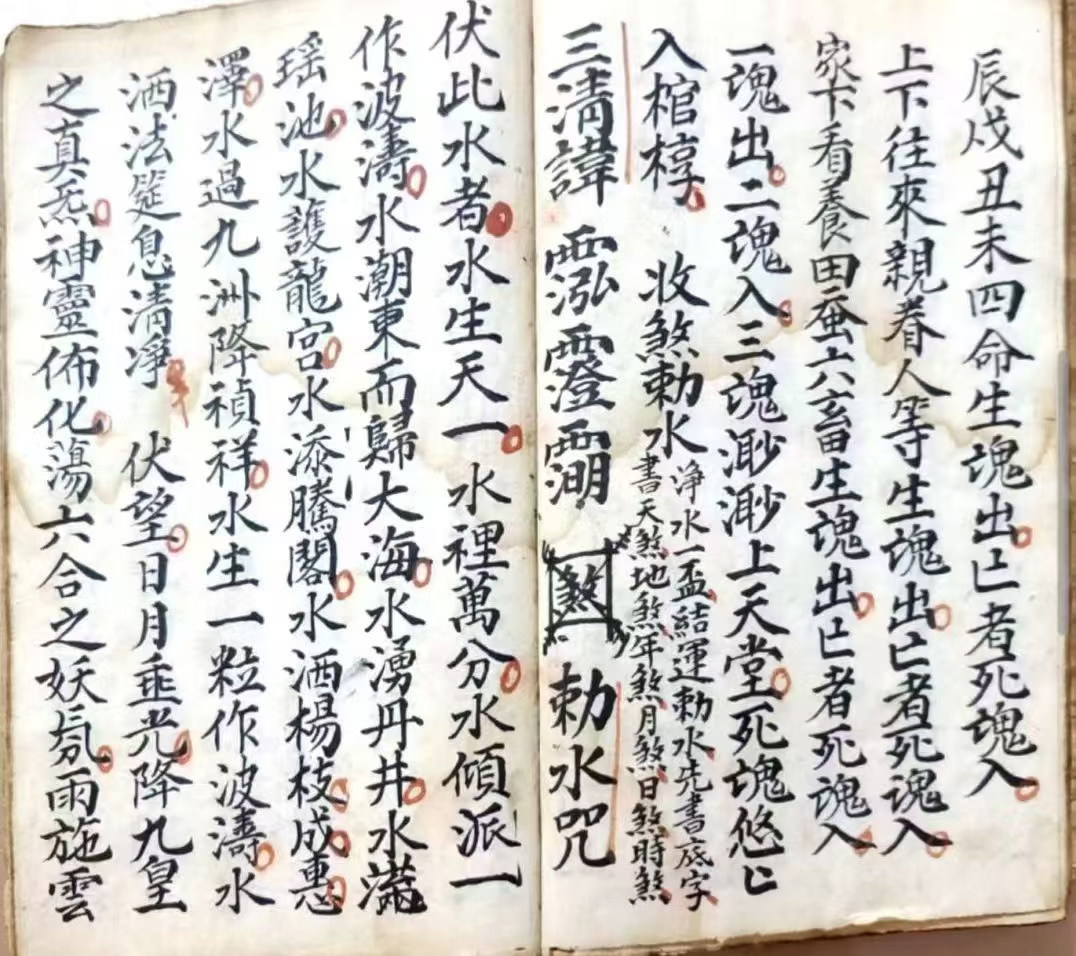 辰戌丑未四命生魂出亡者死魂入
上下往來親眷人等生魂出亡者死魂入
家下看養田蚕六畜生魂出亡者死魂入
一魂出二魂入三魂渺渺上天堂死魂悠亡
入棺椁 收煞勅水
净水一盃結運勅水先書底字
書天煞地煞年煞月煞日煞時煞
三清諱 煞 勅水咒
伏此水者水生天一水裡萬分水傾派一
作波濤水潮東而歸大海水湧丹井水滿
瑶池水護龍宫水添騰閣水洒楊枝成惠
澤水過九洲降禎祥水生一粒作波濤水
洒法筵息清凈 伏望日月垂光降九皇
之真炁神靈佈化蕩六合之妖氛雨施雲